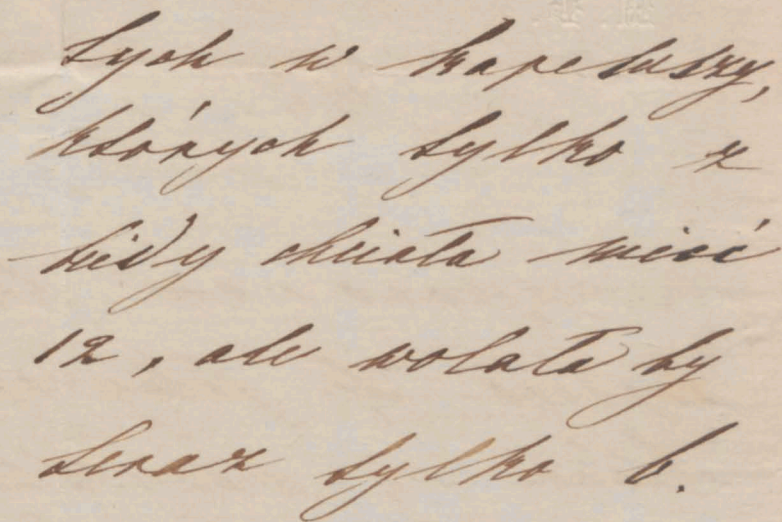 tych w kapeluszy,
których tylko z
kidy chciała mieć
12, ale wolała by
teraz tylko 6.